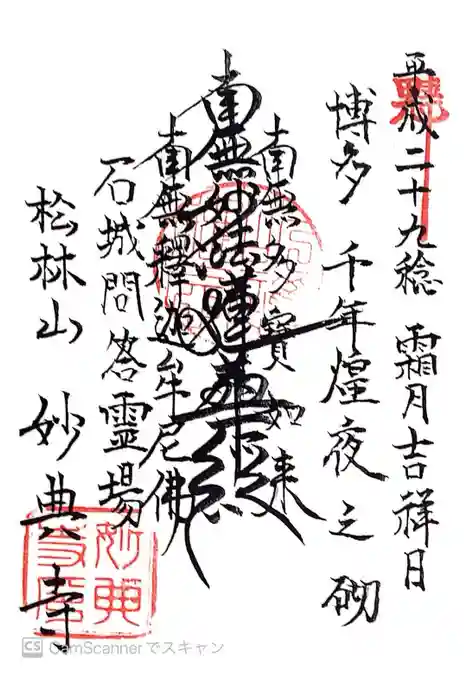 平成二十九稔 霜月吉祥日
博多 千年煌夜之砌
南無多寶如来
南無妙法蓮華経
南無釋迦牟尼佛
石城問答霊場
松林山 妙典寺
CS CamScannerでスキャン